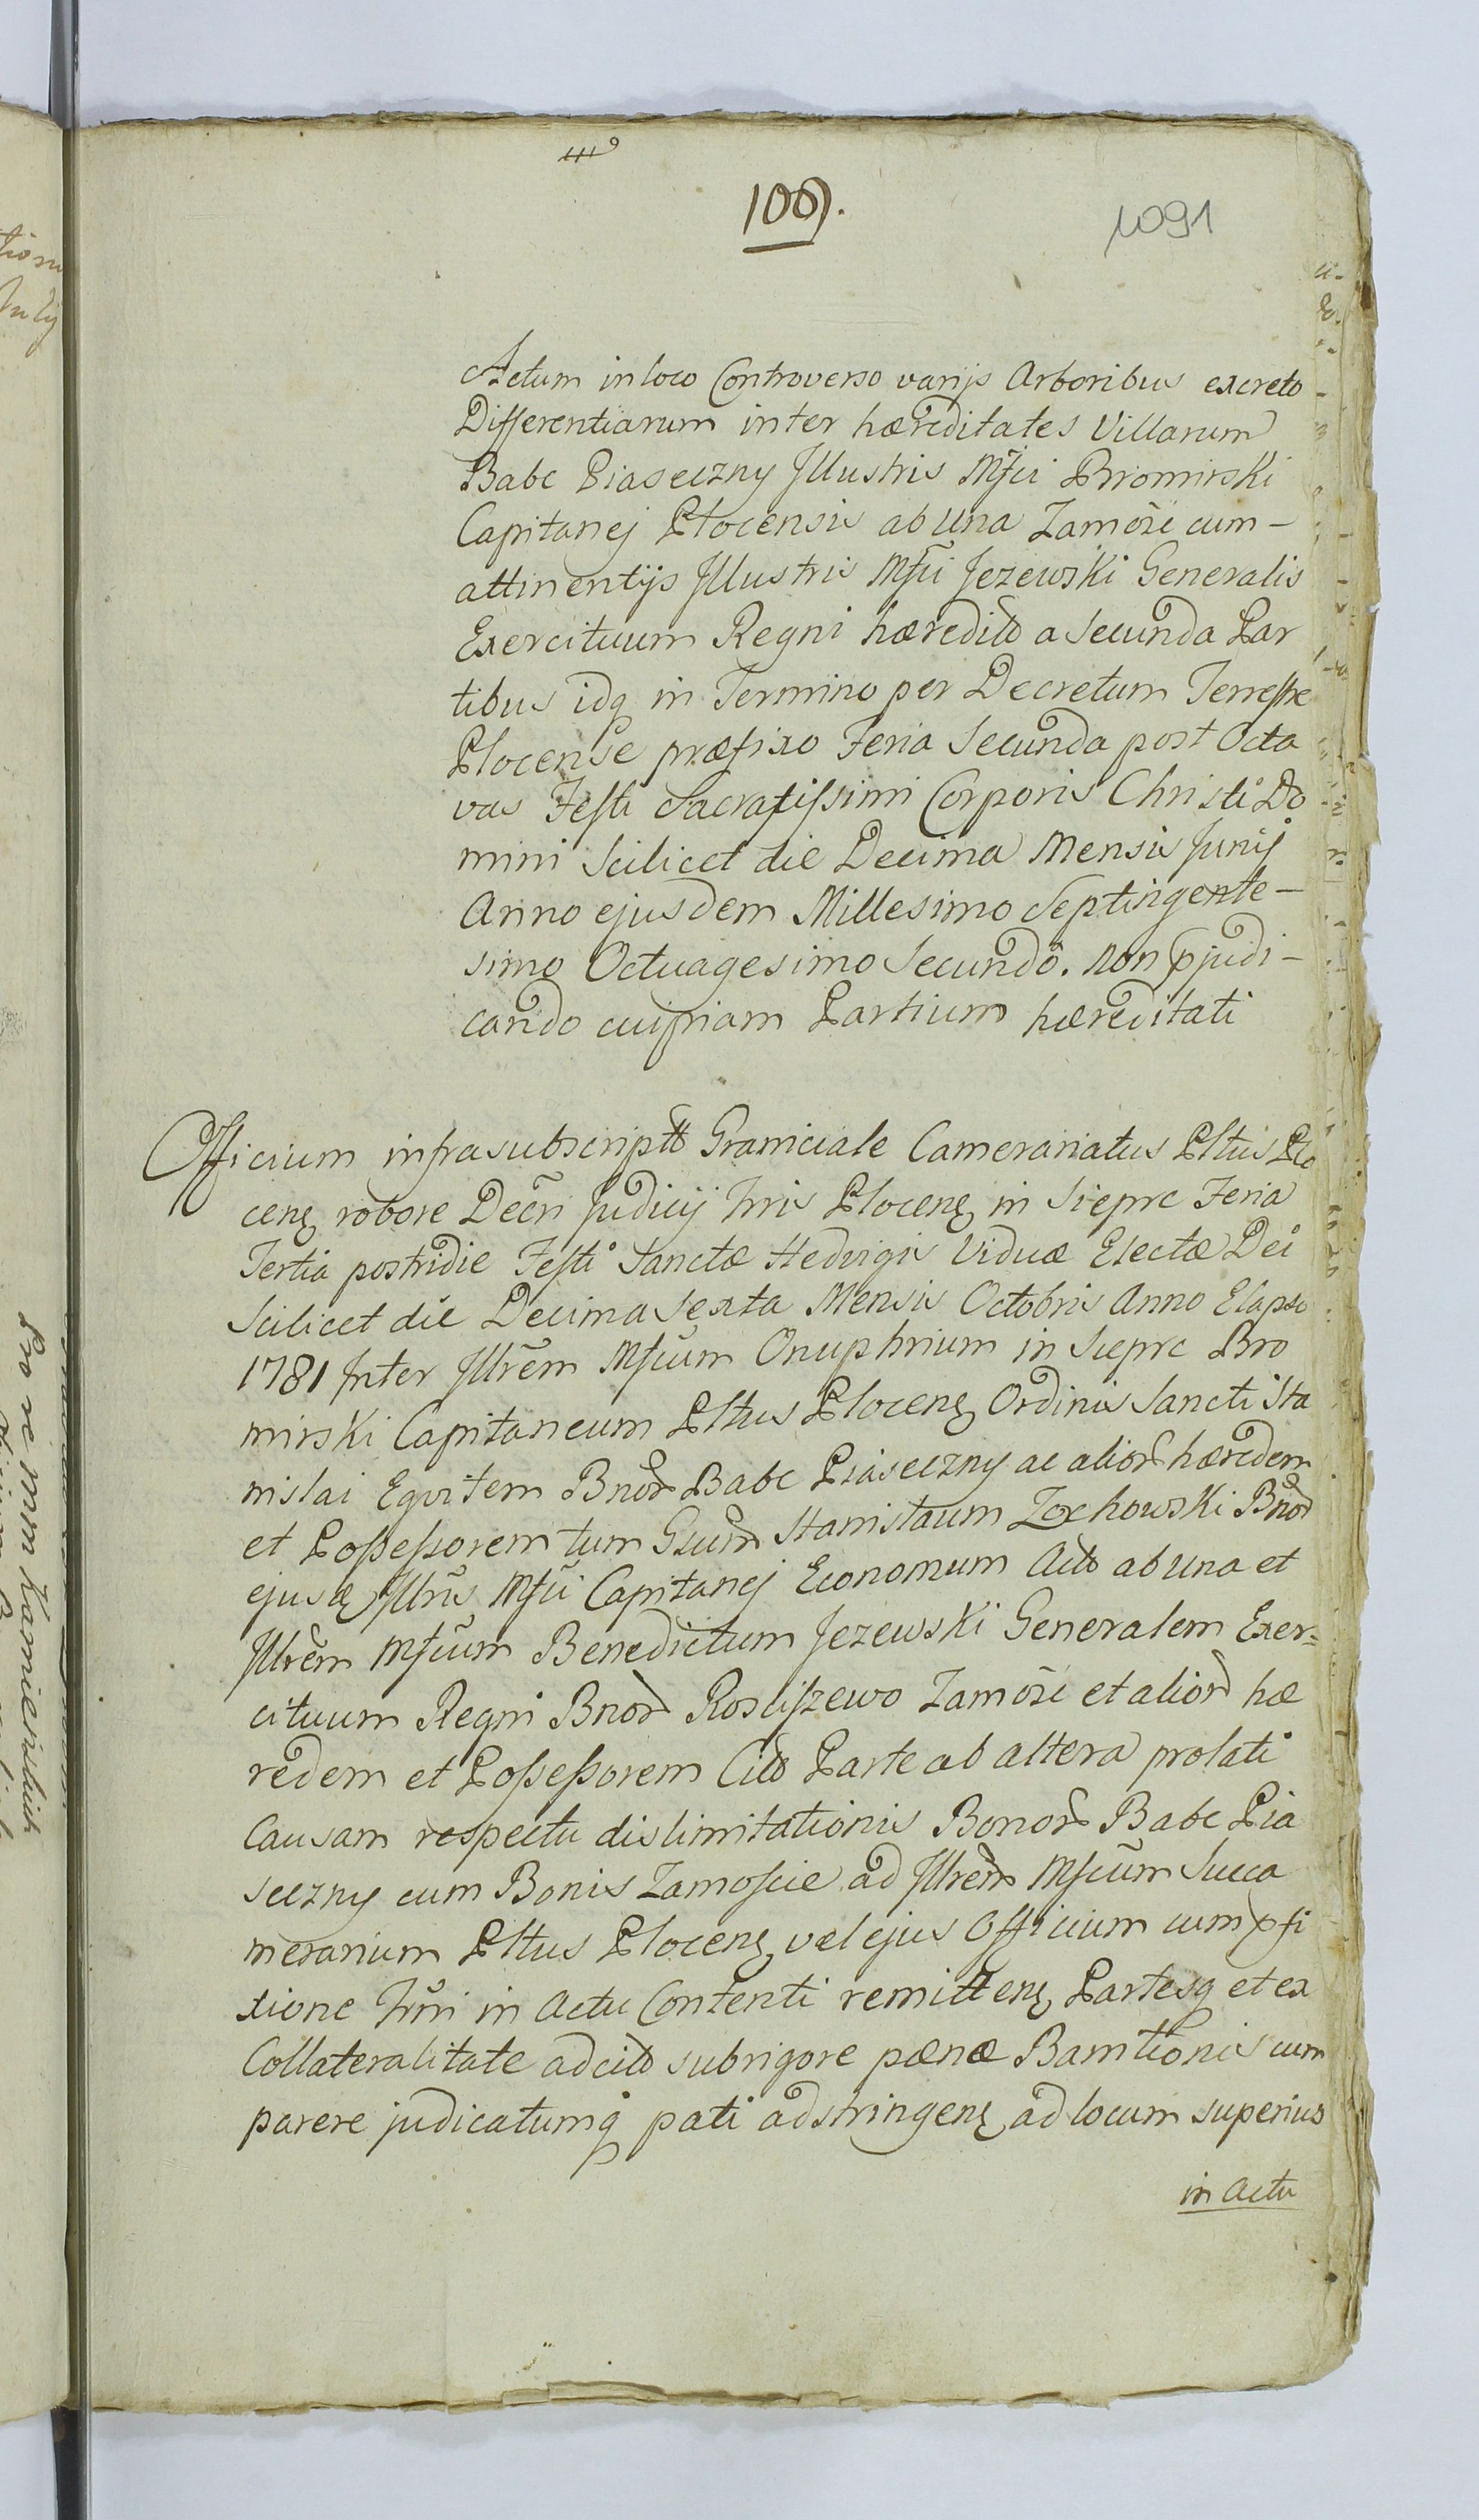 100).
1091
Actum in loco Controverso varijs Arboribus excreto
Differentiarum inter hæreditates Villarum
Babc Piaseczny Jllustris Mfici Bromirski
Capitanej Plocensis ab una Zamośæ cum –
attinentijs Jllustris Mfici Jezewski Generalis
Exercituum Regni hæredit̃ a Secunda Par
tibus idq in Termino per Decretum Terrestre
Plocense præfixo Feria Secunda post Octa
vas Festi Sacratissimi Corporis Christi Do
mini Scilicet die Decima Mensis Junij
Anno ejusdem Millesimo Septingente –
simo Octuagesimo Secundô. non pjudi –
cando cuipiam Partium hæreditati
Officium infrasubscriptt Graniciale Camerariatus Pltus Plo
cens robore Decri Judicij Trris Plocens in Sieprc Feria
Tertia postridie Festi Sanctæ Hedvigis Viduæ Electæ Dei
Scilicet die Decima Sexta Mensis Octobris Anno Elapso
1781 Inter Jllrem Mfcum Onuphrium in Sieprc Bro
mirski Capitaneum Pltus Plocens Ordinis Sancti Sta
nislai Eqvitem Bnor Babc Piaseczny ac alior hæredem
et Possessorem tum Gsum Stanislaum Zochowski Bnor
ejusd Jllris Mfci Capitanej Economum Act ab una et
Jllrem Mfcum Benedictum Jezewski Generalem Exer=
cituum Regni Bnor Rosciszewo Zamośc et alior hæ
redem et Possessorem Cit Parte ab altera prolati
Causam respectu dislimitationis Bonor Babc Pia
seczny cum Bonis Zamoscie ad Jllrem Mfcum Succa
merarium Pltus Plocens vel ejus Officium cum pfi
xione Trmi in Actu Contenti remittens Partesq et ex
Collateralitate adcit sub rigore pænæ Bannitionis cum
parere judicatumq pati adstringens ad locum superius
in Actu